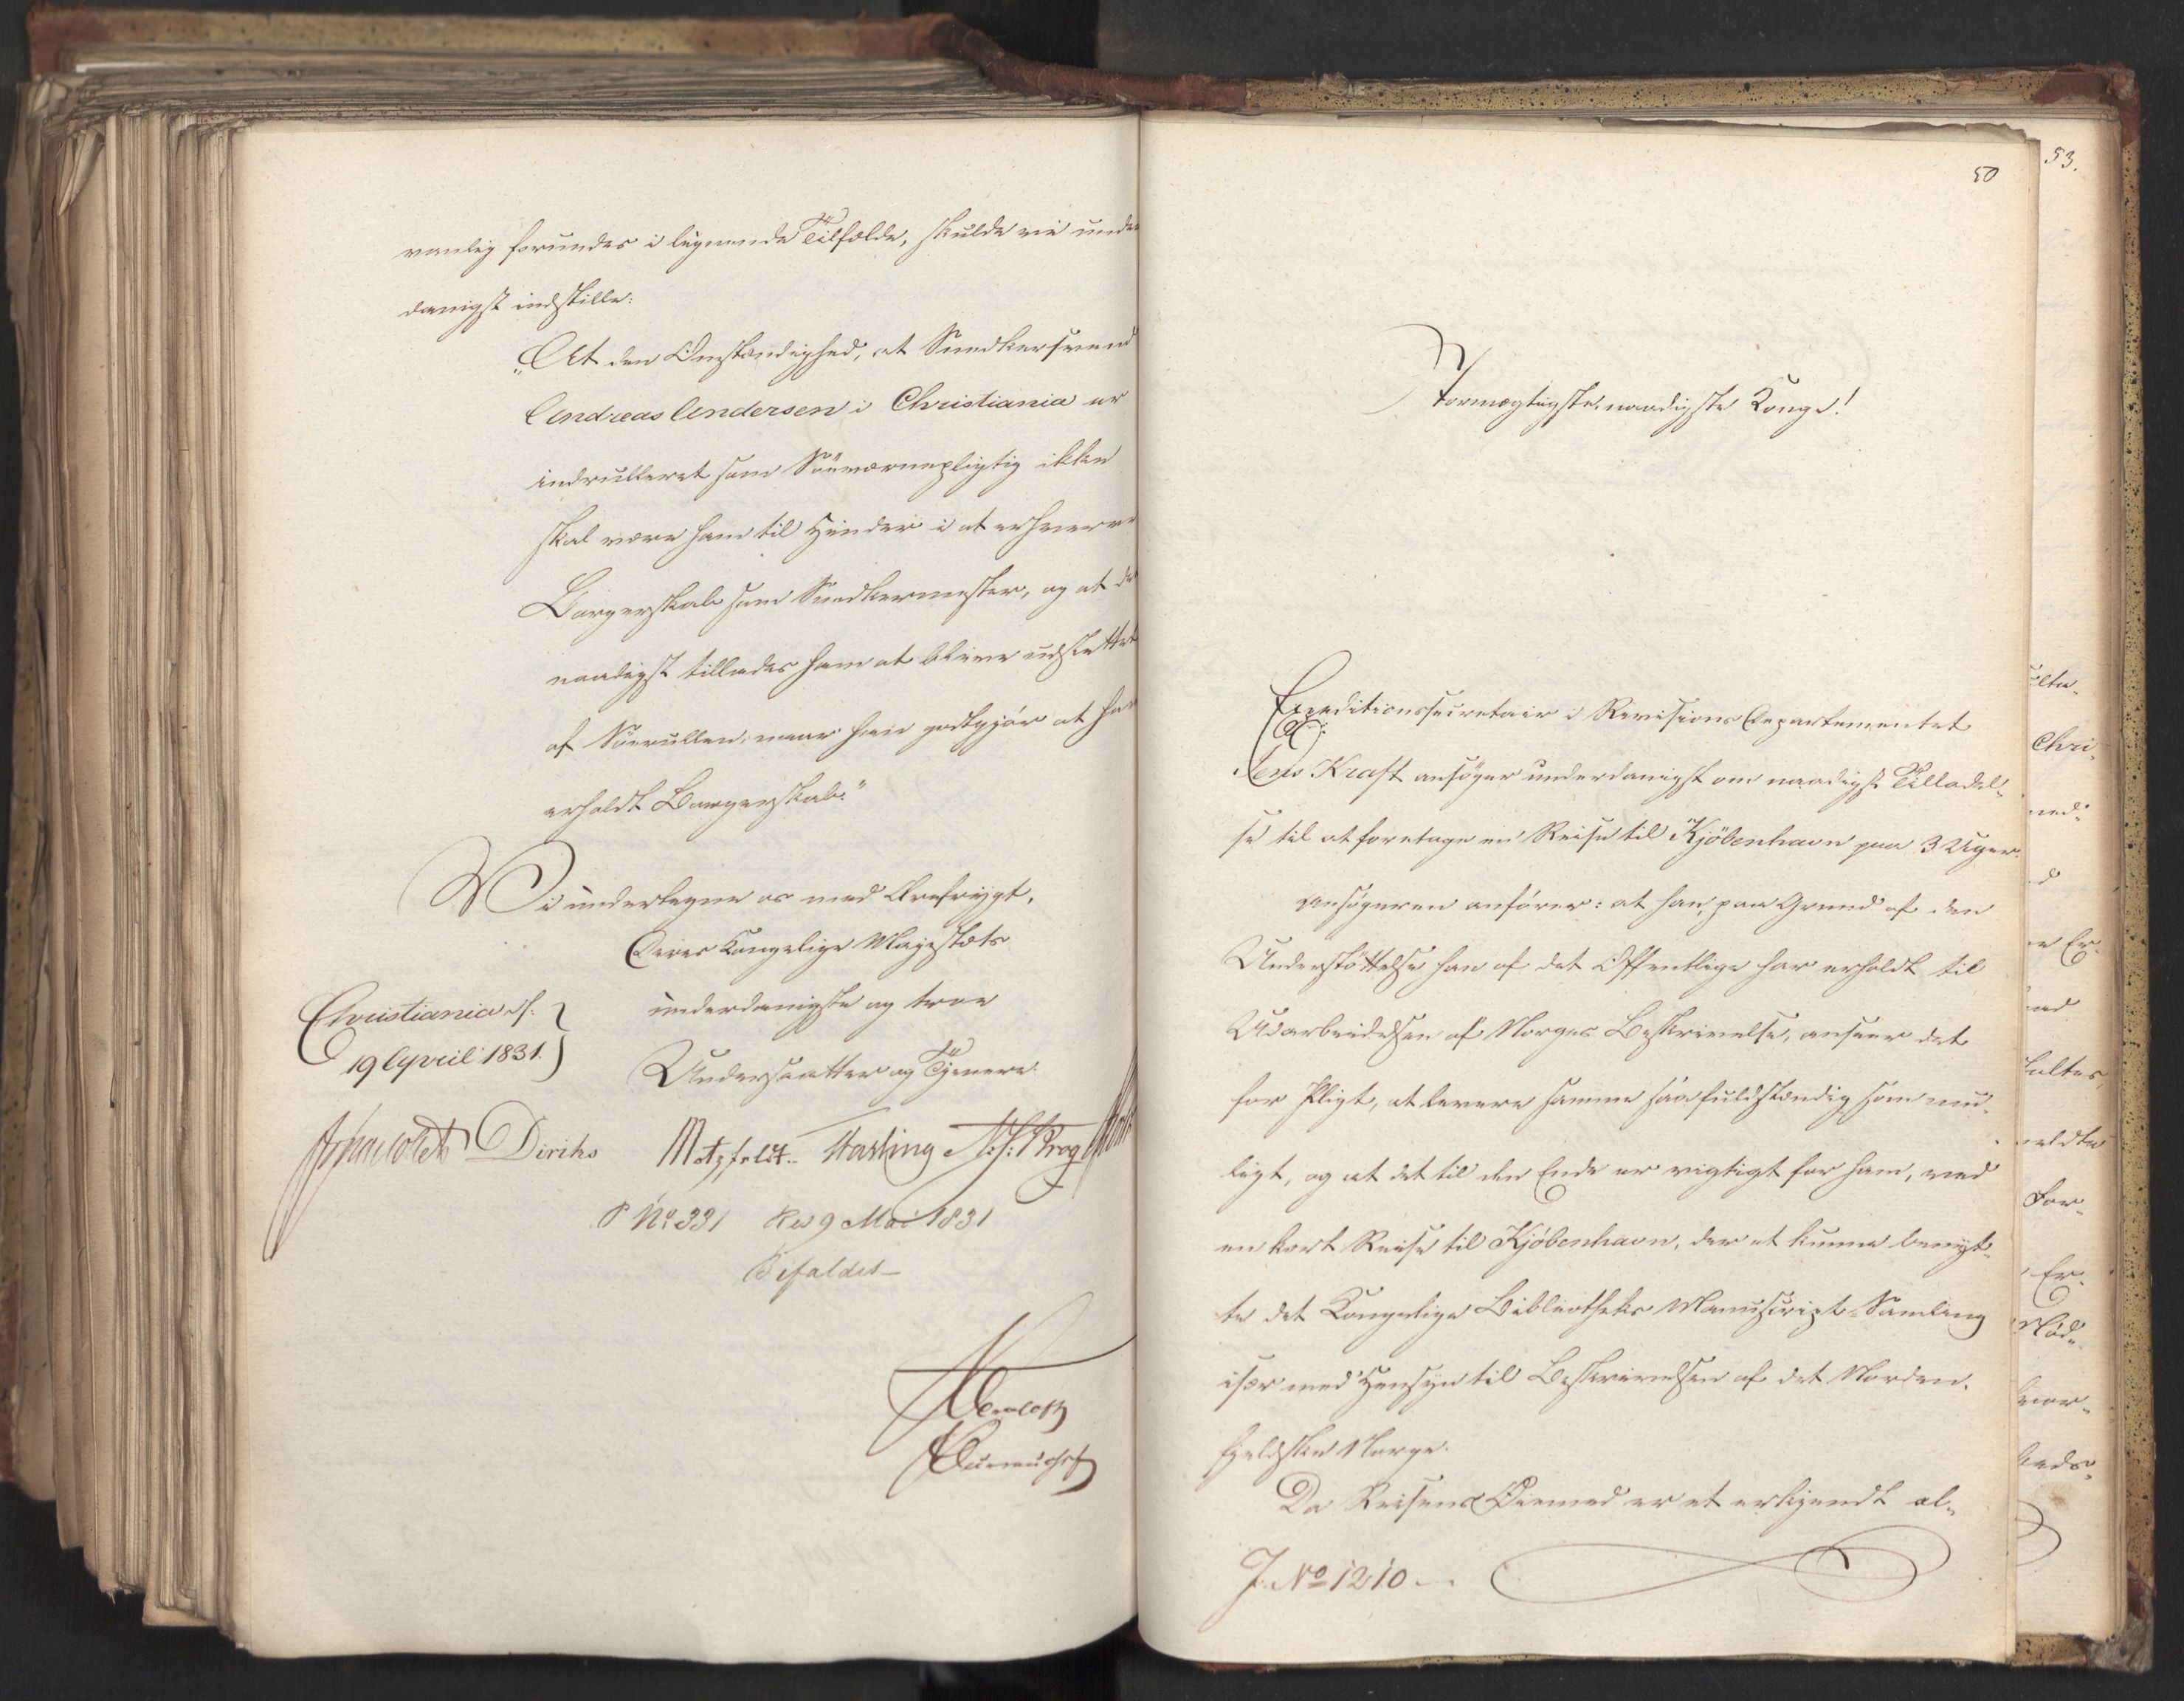 vanlig forundes i lignende Tilfælde, skulde vi under
danigst indstille:
„At den Omstændighed, at Snedkersvend
Andreas Andersen i Christiania er
indrulleret som Söeværnepligtig ikke
skal være ham til Hinder i at erhverve
Borgerskab som Snedkermester, og at det
naadigst tillades ham at blive udslettet
af Söerullen, naar han godtgjör at have
erholdt Borgerskab.”
Vi undertegne os med Ærefrygt,
Deres Kongelige Majestæts
underdanigste og troe
Undersaatter og Tjenere.
Christiania d:
19 April 1831.
Diriks Motzfeldt. N. J. Krog
P No 331 den 9 Mai 1831
Bifaldes
50
Stormægtigste, naadigste Konge!
Expeditionssecretair i Revisions Departementet
Jens Kraft ansöger underdanigst om naadigst Tilladel-
se til at foretage en Reise til Kjöbenhavn paa 3 Uger.
Ansögeren anförer: at han, paa Grund af den
Understöttelse han af det Offentlige har erholdt til
Udarbeidelsen af Norges Beskrivelse, anseer det
for Pligt, at levere samme saa fuldstændig som mu-
ligt, og at det til den Ende er vigtigt for ham, ved
en kort Reise til Kjöbenhavn, der at kunne benyt-
te det Kongelige Bibliotheks Manuscript-Samling
især med Hensyn til Beskrivelsen af det Norden-
fjeldske Norge.
Da Reisens Öiemed er et erkjendt al-
J. No 1210
53.
Chri-
For-